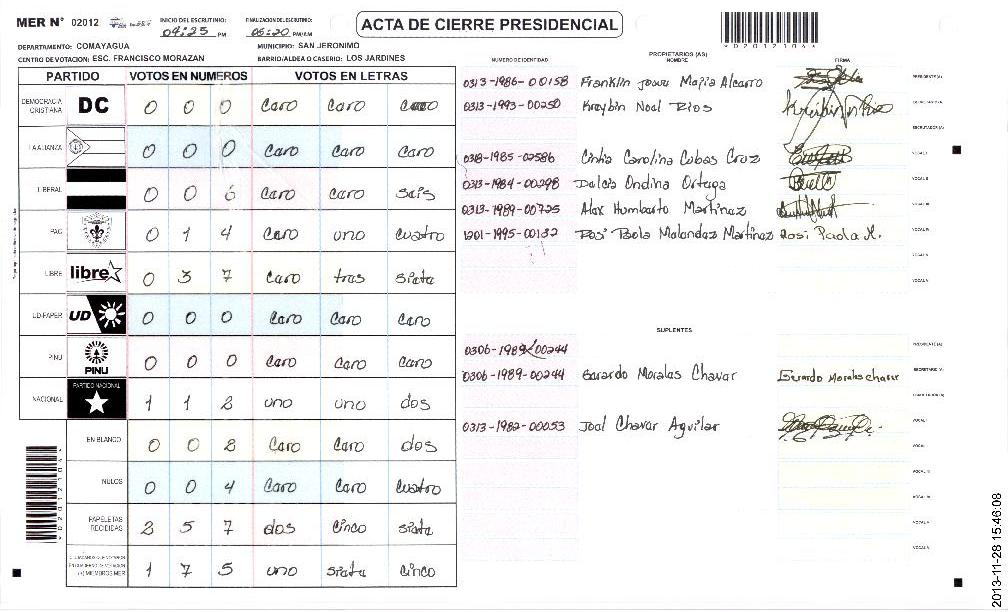 MER N° 02012
INICIO DEL ESCRUTINIO: 04:25 PM
FINALIZACION DEL ESCRUTINIO: 05:20 PM/AM
ACTA DE CIERRE PRESIDENCIAL
*02012104*
DEPARTAMENTO: COMAYAGUA
MUNICIPIO: SAN JERONIMO
CENTRO DE VOTACION: ESC. FRANCISCO MORAZAN
BARRIO/ALDEA O CASERIO: LOS JARDINES
PARTIDO VOTOS EN NUMEROS VOTOS EN LETRAS
DEMOCRACIA CRISTIANA DC 0 0 0 Cero Cero Cero
LA ALIANZA 0 0 0 Cero Cero Cero
LIBERAL 0 0 6 Cero Cero seis
PAC 0 1 4 Cero uno cuatro
LIBRE libre 0 3 7 Cero tres siete
UD-FAPER UD 0 0 0 Cero Cero Cero
PINU PINU 0 0 0 Cero Cero Cero
NACIONAL PARTIDO NACIONAL 1 1 2 uno uno dos
EN BLANCO 0 0 2 Cero Cero dos
NULOS 0 0 4 Cero Cero Cuatro
PAPELETAS RECIBIDAS 2 5 7 dos Cinco siete
CIUDADANOS QUE VOTARON EN CUADERNO DE VOTACION (+) MIEMBROS MER 1 7 5 uno siete Cinco
PROPIETARIOS (AS)
NUMERO DE IDENTIDAD NOMBRE FIRMA
0313-1986-00158 Franklin Mejia Alcerro PRESIDENTE(A)
0313-1993-00250 Kreybin Noel Rios SECRETARIO(A)
ESCRUTADOR(A)
0318-1985-02586 Cintia Carolina Cubas Cruz VOCAL I
0313-1984-00298 Dulce Ondina Ortega VOCAL II
0313-1989-00725 Alex Humberto Martinez VOCAL III
1201-1995-00132 Rosi Paola Melendez Martinez Rosi Paola M. VOCAL IV
VOCAL V
VOCAL VI
SUPLENTES
0306-1989-00244 PRESIDENTE(A)
0306-1989-00244 Gerardo Morales Chever Gerardo Morales chever SECRETARIO(A)
ESCRUTADOR(A)
0313-1982-00053 Joel Chever Aguilar VOCAL I
VOCAL II
VOCAL III
VOCAL IV
VOCAL V
2013-11-28 15:46:08